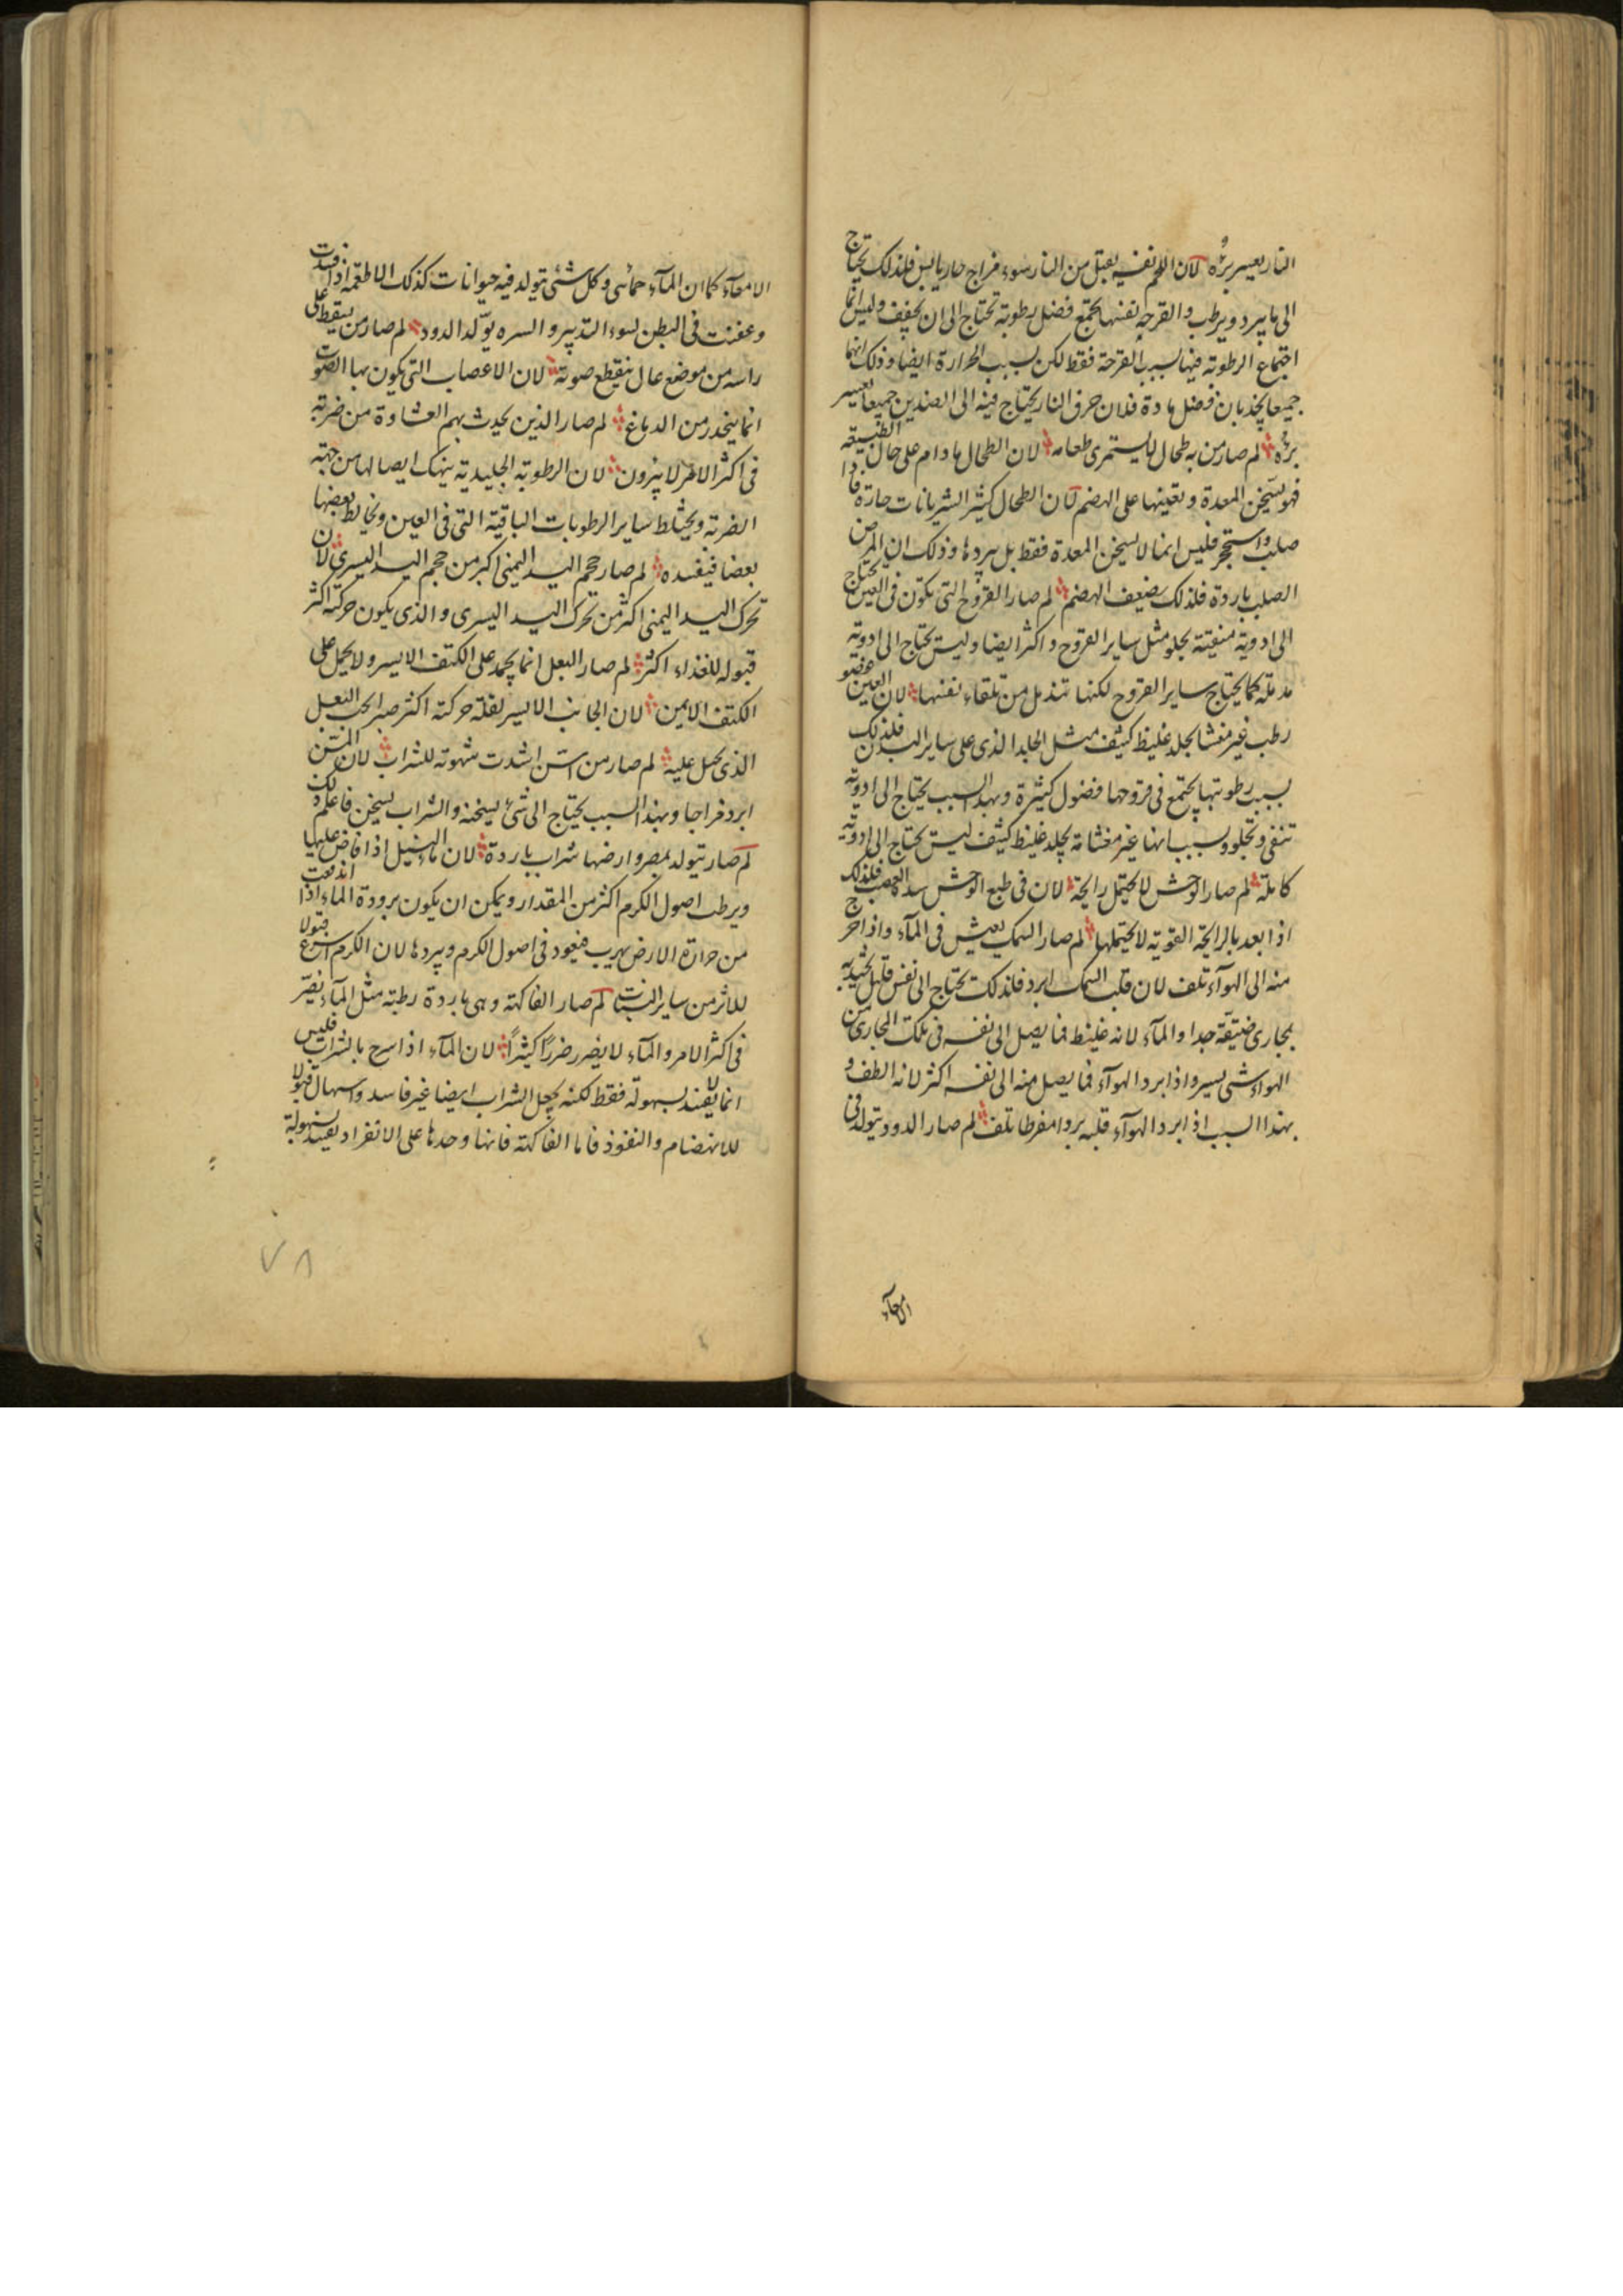 النار يعسر برؤه لان اللحم نفسه يقبل من النار سوء مزاج حار يابس فلذلك يحتاج
الى ما يبرد ويرطب والقرحة نفسها يجتمع فضل رطوبة تحتاج الى ان يجفف وليس انما
اجتماع الرطوبة فيها بسبب القرحة فقط لكن بسبب الحرارة ايضا وذلك انهما
جميعا يجذبان فضل مادة فلان حرق النار يحتاج فيه الى الضدين جميعا يعسر
برؤه لم صار من به طحال لا يستمرى طعامه لان الطحال ما دام على حال الطبيعة
فهو يسخن المعدة ويعينها على الهضم لان الطحال كثير الشريانات حارة فاذا
صلب واستحجر فليس انما لا يسخن المعدة فقط بل يبردها وذلك ان المرض
الصلب باردة فلذلك يضعف الهضم لم صار القروح التى تكون فى العين يحتاج
الى ادوية منقية يجلو مثل ساير القروح واكثر ايضا وليس تحتاج الى ادوية
مدملة كما يحتاج ساير القروح لكنها تندمل من تلقاء نفسها لان العين عضو
رطب غير مغشا بجلد غليظ كثيف مثل الجلد الذى على ساير البدن فلذلك
بسبب رطوبتها يجتمع فى قروحها فضول كثيرة وبهذا السبب يحتاج الى ادوية
تنقى وتجلو وبسبب انها غير مغشاة بجلد غليظ كثيف ليس يحتاج الى ادوية
كاملة لم صار الوحش لا يحتمل رايحة لان فى طبع الوحش العصب فلذلك
اذا بعد بالرايحة القوية لا يحتملها لم صار السمك يعيش فى المآء واذا خرج
منه الى الهوآء تلف لان قلب السمك ابرد فلذلك يحتاج الى نفس قليل يجتذبه
بمجارى ضيقة جدا والمآء لانه غليظ فما يصل الى نفسه فى تلك المجارى من
الهواء شى يسير واذا برد الهوآء فما يصل منه الى نفسه اكثر لانه الطف و
بهذا السبب اذا برد الهوآء قلبه بردا مفرطا تلف لم صار الدود يتولد فى
الامعآء
الامعآء كما ان المآء حمائى وكل شئى يتولد فيه حيوانات كذلك الاطعمة اذا فسدت
وعفنت فى البطن لسوء التدبير والسره يولد الدود لم صار من يسقط على
راسه من موضع عال ينقطع صوته لان الاعصاب التى يكون بها الصوت
انما ينحدر من الدماغ لم صار الذين يحدث بهم الغشاوة من ضربة
فى اكثر الامر لا يبرون لان الرطوبة الجليدية ينهتك ايصالها من جهة
الضربة ويختلط ساير الرطوبات الباقية التى فى العين ويخالط بعضها
بعضا فيفسده لم صار حجم اليد اليمنى اكبر من حجم اليد اليسرى لان
تحرك اليد اليمنى اكثر من تحرك اليد اليسرى والذى يكون حركته اكثر
قبوله للغذاء اكثر لم صار البعل انما يحمد على الكتف الايسر ولا يحمل على
الكتف الايمن لان الجانب الايسر لقلة حركته اكثر صبرا لحمل الثقل
الذى يحمل عليه لم صار من اسن اشتدت شهوته للشراب لان المسن
ابرد مزاجا وبهذا السبب يحتاج الى شئ يسخنه والشراب يسخن فاعلم ذلك
لم صار يتولد بمصر وارضها شراب باردة لان ماء النيل اذا فاض عليها
ويرطب اصول الكرم اكثر من المقدار ويمكن ان يكون برودة الماء اذا اندفعت
من حرارة الارض يهرب فيعود فى اصول الكرم ويبردها لان الكرم اسرع قبولا
للاثر من ساير النبات لم صار الفاكهة وهى باردة رطبة مثل المآء يضر
فى اكثر الامر والمآء لا يضر ضررا كثيرا لان المآء اذا مزج بالشراب فليس
انما لا يفسد بسهولة فقط لكنه يجعل الشراب ايضا غير فاسد واسهال قبولا
للانهضام والنفوذ فاما الفاكهة فانها وحدها على الانفراد يفسد بسهولة
٧٨